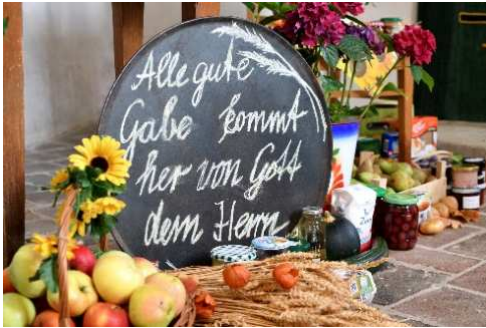 Alle gute
Gabe kommt
her von Gott
dem Herrn